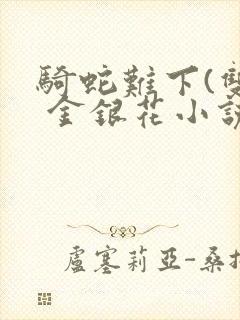 騎蛇難下(雙
金銀花小說
盧塞莉亞-桑拉